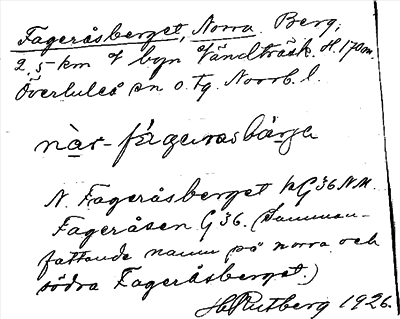 Fageråsberget, Norra. Berg,
2,5 km V byn Vändträsk. H. 170 m.
Överluleå sn o. tg. Norrb. l.
når- fágärasbärjä
N. Fageråsberget på G 36 NM.
Fageråsen G 36. (Samman-
fattande namn på norra och
södra Fageråsberget.)
H Rutberg 1926.